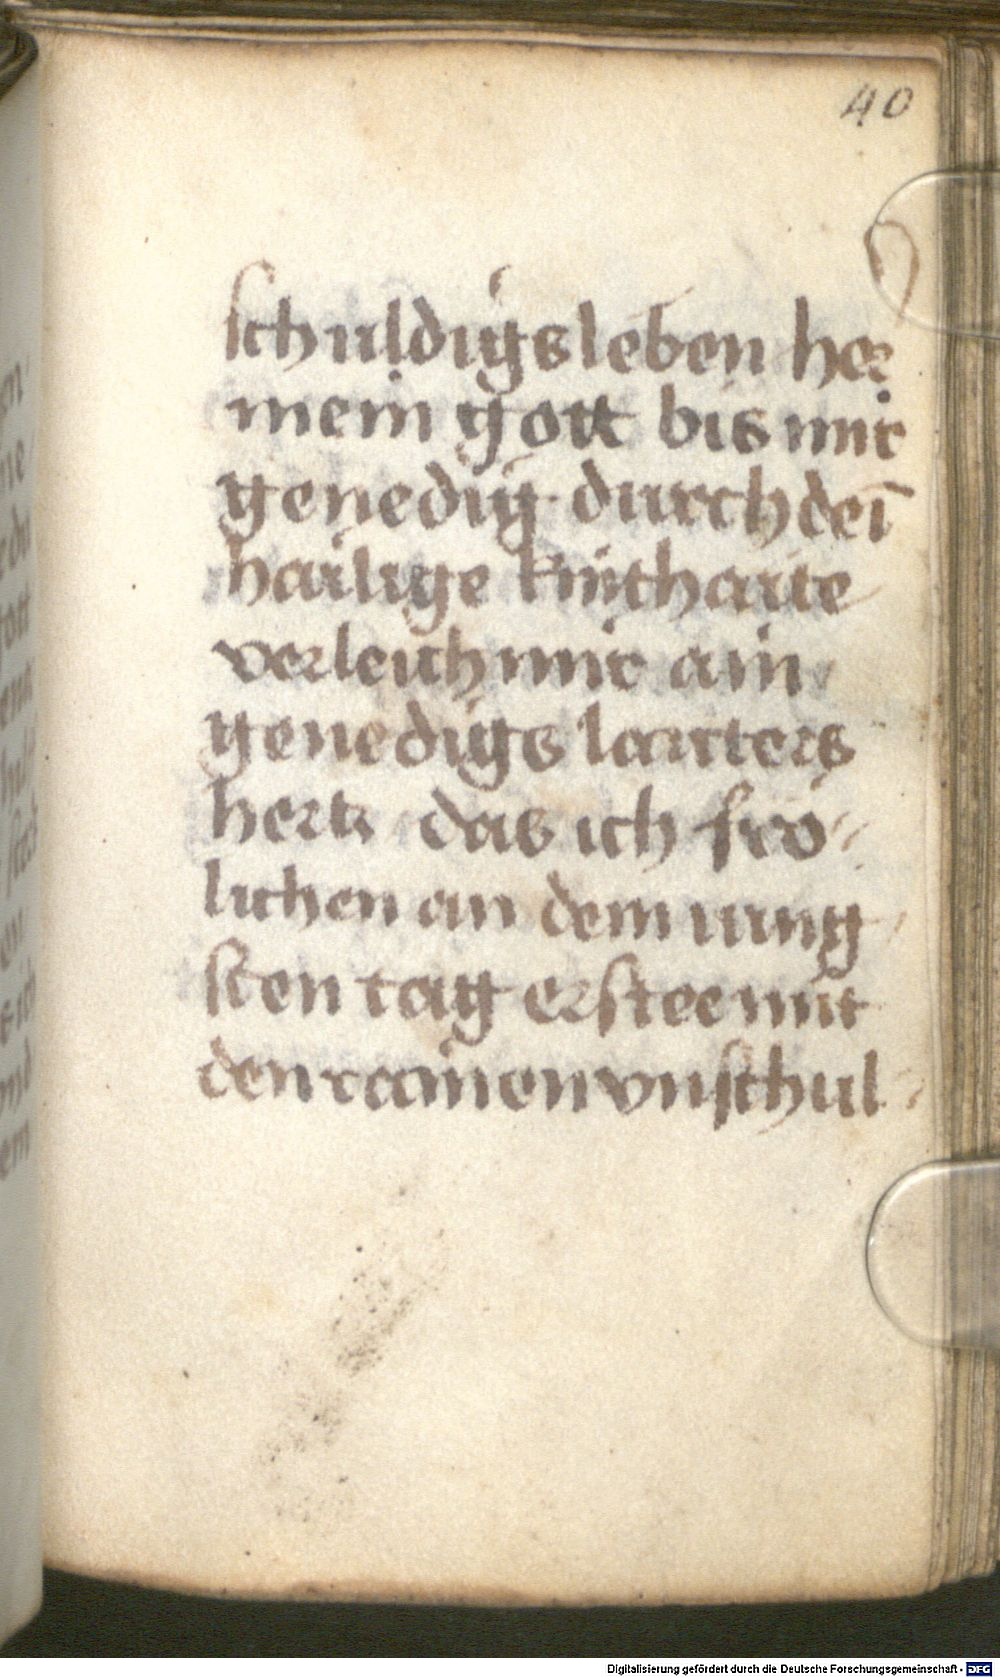 40
schuldigs leben her
mein gott bis mir
genedig durch dei̅
hailige kinthaite
verleich mir ain
genedigs lauters
hertz das ich frö-
lichen an dem iung
sten tag erstee mit
den rainen vnschul-
Digitalisierung gefördert durch die Deutsche Forschungsgemeinschaft - DFG